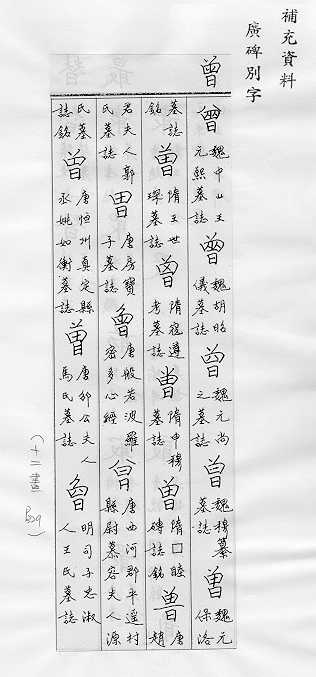 補充資料
廣碑別字
曾
曾 魏中山王元熙墓誌 曾 魏胡昭儀墓誌 曾 魏元尚之墓誌 曾 魏穆纂墓誌 曾 魏元保洛
墓誌銘 曾 隋王世琛墓誌 曾 隋寇遵考墓誌 曾 隋申穆墓誌 曾 隋□睦磚誌銘 曾 唐趙
君夫人郭氏墓誌 曾 唐房寶子墓誌 曾 唐般若波羅密多心經 曾 唐西河郡平遙村縣尉慕容夫人源
氏墓誌銘 曾 唐恒州真定縣丞姚如衡墓誌 曾 唐邠公夫人馬氏墓誌 曾 明司子忠淑人王氏墓誌
(十二畫 809)